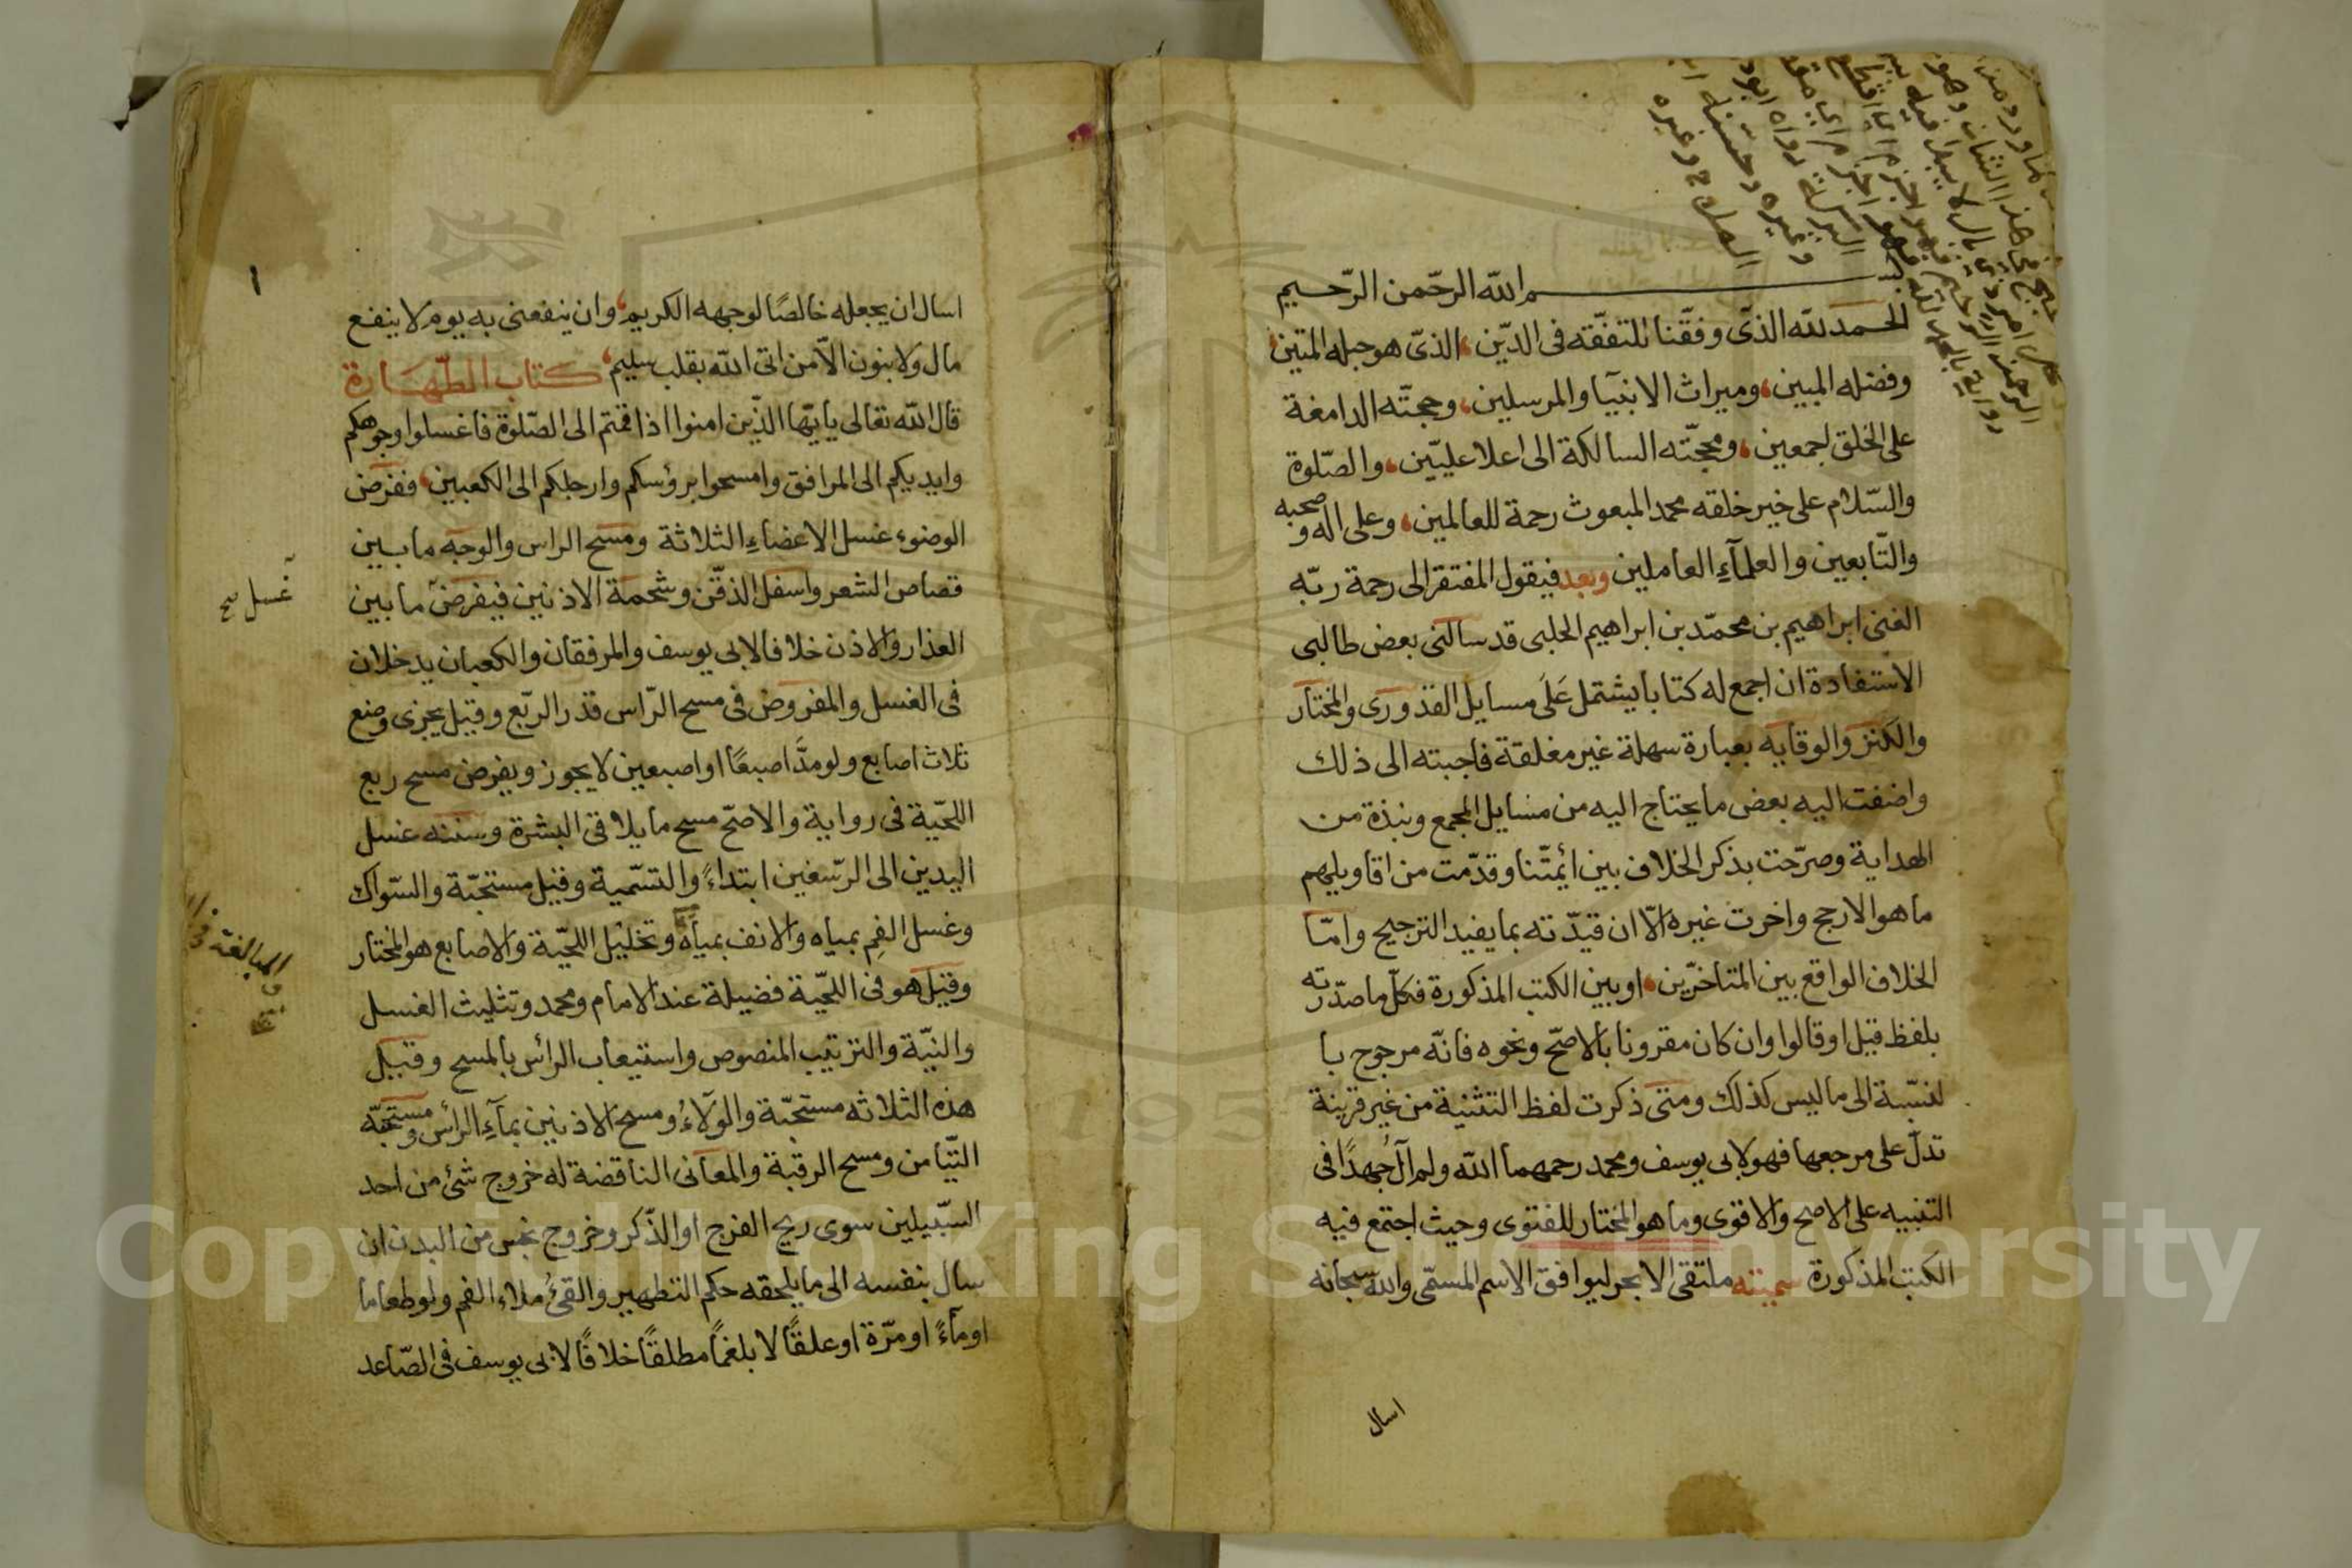 بسم الله الرّحمن الرّحيم
الحمد لله الذى وفقنا للتفقّه فى الدّين، الذىّ هو حبله المتين
وفضله المبين، وميراث الانبيآ والمرسلين، وحجتّه الدامغة
على الخلق اجمعين، ومحجّته السالكة الى اعلا عليّين، والصّلوة
والسّلام على خير خلقه محمد المبعوث رحمة للعالمين، وعلى اله وصحبه
والتّابعين والعلمآءِ العاملين وبعد فيقول المفتقر الى رحمة ربّه
الغنى ابراهيم بن محمّد بن ابراهيم الحلبى قد سالنى بعض طالبى
الاستفادة ان اجمع له كتابا يشتمل عَلَى مسايل القدورى والمختار
والكنز والوقايه بعبارة سهلة غير مغلقة فاجبته الى ذلك
واضفت اليه بعض ما يحتاج اليه من مسايل المجمع ونبذة من
الهداية وصرّحت بذكر الخلاف بين ائمتّنا وقدّمت من اقاويلهم
ما هو الارجح واخرت غيره الّا ان قيدّته بما يفيد الترجيح وامّا
الخلاف الواقع بين المتاخرّين، او بين الكتب المذكورة فكلّ ما صدّرته
بلفظ قيل او قالوا وان كان مقرونا بالاصحّ ونحوه فانّه مرجوح با
لنسّبة الى ما ليس كذلك ومتى ذكرت لفظ التثنية من غير قرينة
تدلّ على مرجعها فهو لابى يوسف ومحمد رحمهما الله ولم آلُ جُهدًا فى
التنبيه على الاصح والاقوى وما هو المختار للفتوى وحيث اجتمع فيه
الكتب المذكورة سميته ملتقى الابحر ليوافق الاسم المسمّى والله سبحانه
اسال
١
اسال ان يجعله خالصًا لوجهه الكريم، وان ينفعنى به يوم لا ينفع
مال ولا بنون الّا من اتى الله بقلب سليم، كتاب الطّهَارة
قال الله تعالى يايّها الذّين امنوا اذا قمتم الى الصّلوة فاغسلوا وجوهكم
وايديكم الى المرافق وامسحوا برؤسكم وارجلكم الى الكعبين، ففرض
الوضوء غسل الاعضاءِ الثلاثة ومسح الراس والوجه ما بين
قصاص الشعر واسفل الذقّن وشحمة الاذنين فيفرض ما بين
غسل صح
العذار والاذن خلافا لابى يوسف والمرفقان والكعبان يدخلان
فى الغسل والمفروض فى مسح الرّاس قدر الربّع وقيل يجزى وضع
ثلاث اصابع ولو مدَّ اصبعًا او اصبعين لا يجوز ويفرض مسح ربع
اللحّية فى رواية والاصحّ مسح ما يلاقى البشرة وسننه غسل
اليدين الى الرسّغين ابتداءً والتسّمية وقيل مستحبّة والسّواك
وغسل الفمِ بمياه والانف بمياه وتخليل اللحّية والاصابع هو المختار
وقيل هو فى اللحّية فضيلة عند الامام ومحمد وتثليث الغسل
والنيّة والترتيب المنصوص واستيعاب الرائس بالمسح وقيل
هذه الثلاثه مستحبّة والولآءُ ومسح الاذنين بمآءِ الرائس ومستحبّه
التيّامن ومسح الرقبة والمعانى الناقضة له خروج شئ من احد
السّبيلين سوى ريح الفرج او الذّكر وخروج نجس من البدن ان
سال بنفسه الى ما يلحقه حكم التطهير والقئُ ملاء الفم ولو طعاما
او مآءً او مرّة او علقًا لا بلغمًا مطلقًا خلافًا لابى يوسف فى الصّاعد